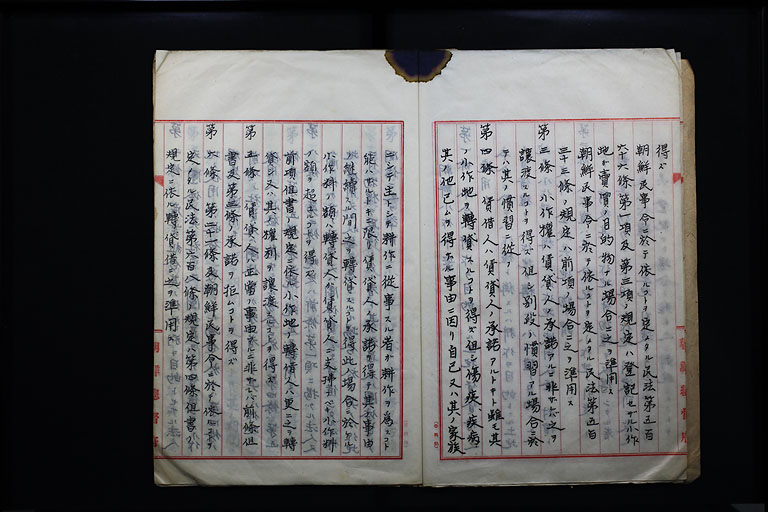 得ズ
朝鮮民事令ニ於テ依ルコトヲ定メタル民法第五百
六十六條第一項及第三項ノ規定ハ登記セザル小作
地ガ賣買ノ目的物ナル場合ニ之ヲ準用ス
朝鮮民事令ニ於テ依ルコトヲ定メタル民法第五百
三十三條ノ規定ハ前項ノ場合ニ之ヲ準用ス
第三條 小作權ハ賃貸人ノ承諾アルニ非ザレバ之ヲ
讓渡スコトヲ得ズ但シ別段ノ慣習アル場合ニ於
テハ其ノ慣習ニ從フ
第四條 賃借人ハ賃貸人ノ承諾アルトキト雖モ其
ノ小作地ヲ轉貸スルコトヲ得ズ但シ傷痍疾病
其ノ他已ムヲ得ザル事由ニ因リ自己又ハ其ノ家族
ニシテ主トシテ耕作ニ從事スル者ガ耕作ヲ爲スコト
能ハザルトキニ限リ賃貸人ノ承諾ヲ得テ其ノ事由
ノ繼續スル間之ヲ轉貸スルコトヲ得此ノ場合ニ於ケル
小作料ノ額ハ轉貸人ガ賃貸人ニ支拂フベキ小作料
ノ額ヲ超ユルコトヲ得ズ
前項但書ノ規定ニ依ル小作地ノ轉借人ハ更ニ之ヲ轉
貸シ又ハ其ノ權利ヲ讓渡スコトヲ得ズ
第五條 賃貸人ハ正當ノ事由アルニ非ザレバ前條但
書及第三條ノ承諾ヲ拒ムコトヲ得ズ
第六條 第二十一條及朝鮮民事令ニ於テ依ルコトヲ
定メタル民法第六百條ノ規定ハ第四條但書ノ
規定ニ依ル轉貸借ニ之ヲ準用ス